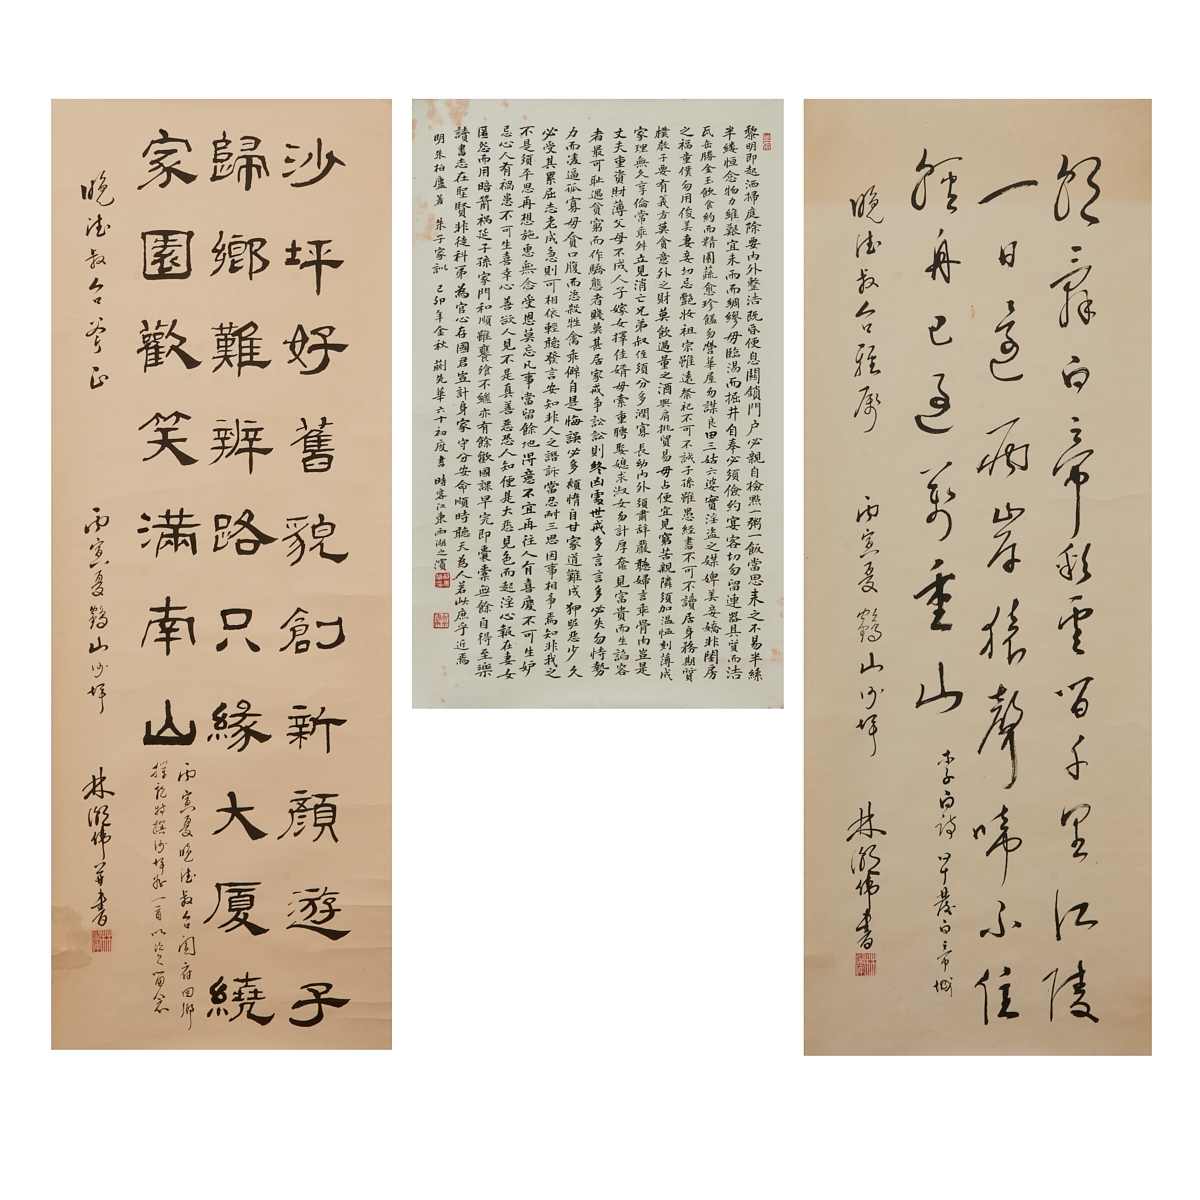 朝辭白帝彩雲間千里江陵
一日還兩岸猿聲啼不住
輕舟已過萬重山
李白詩 早發白帝城
晚德叔台雅屬 丙寅夏鶴山沙坪 林潮偉書
黎明即起洒掃庭除要內外整洁既昏便息關鎖門户必親自檢點一粥一飯當思来之不易半絲
半縷恒念物力維艱宜未雨而綢繆毋臨渴而掘井自奉必須儉約宴客切勿留連器具質而洁
瓦缶勝金玉飲食約而精園蔬愈珍饈勿營華屋勿謀良田三姑六婆實淫盜之媒婢美妾嬌非閨房
之福童僕勿用俊美妻妾切忌艷妝祖宗雖遠祭祀不可不誠子孫雖愚經書不可不讀居身務期質
樸教子要有義方莫貪意外之財莫飲過量之酒與肩挑貿易毋占便宜見窮苦親隣須加溫恤刻薄成
家理無久享倫常乖舛立見消亡兄弟叔侄須分多潤寡長幼內外須肅辭嚴聽婦言乖骨肉豈是
丈夫重資財薄父母不成人子嫁女擇佳婿毋索重聘娶媳求淑女勿計厚奩見富貴而生諂容
者最可耻遇貧窮而作驕態者賤莫甚居家戒争訟訟則終凶處世戒多言言多必失勿恃勢
力而凌逼孤寡毋貪口腹而恣殺牲禽乖僻自是悔誤必多頹惰自甘家道難成狎昵恶少久
必受其累屈志老成急則可相依輕聽發言安知非人之譖訴當忍耐三思因事相争焉知非我之
不是須平思再想施惠無念受恩莫忘凡事當留餘地得意不宜再往人有喜慶不可生妒
忌心人有禍患不可生喜幸心善欲人見不是真善恶恐人知便是大恶見色而起淫心報在妻女
匿怨而用暗箭禍延子孫家門和順雖饔飧不繼亦有餘歡國課早完即囊橐無餘自得至樂
讀書志在聖賢非徒科第為官心存國君豈計身家守分安命順時聽天為人若此庶乎近焉
明朱柏廬著 朱子家訓 己卯年金秋 蒯先華六十初度書 時客江東西湖之濱
沙坪好舊貌創新顏遊子
歸鄉難辨路只緣大厦繞
家園歡笑滿南山
丙寅夏晚德叔台闔府回鄉
探親特撰沙坪頌一首以誌留念
晚德叔台斧正 丙寅夏鶴山沙坪 林潮偉並書